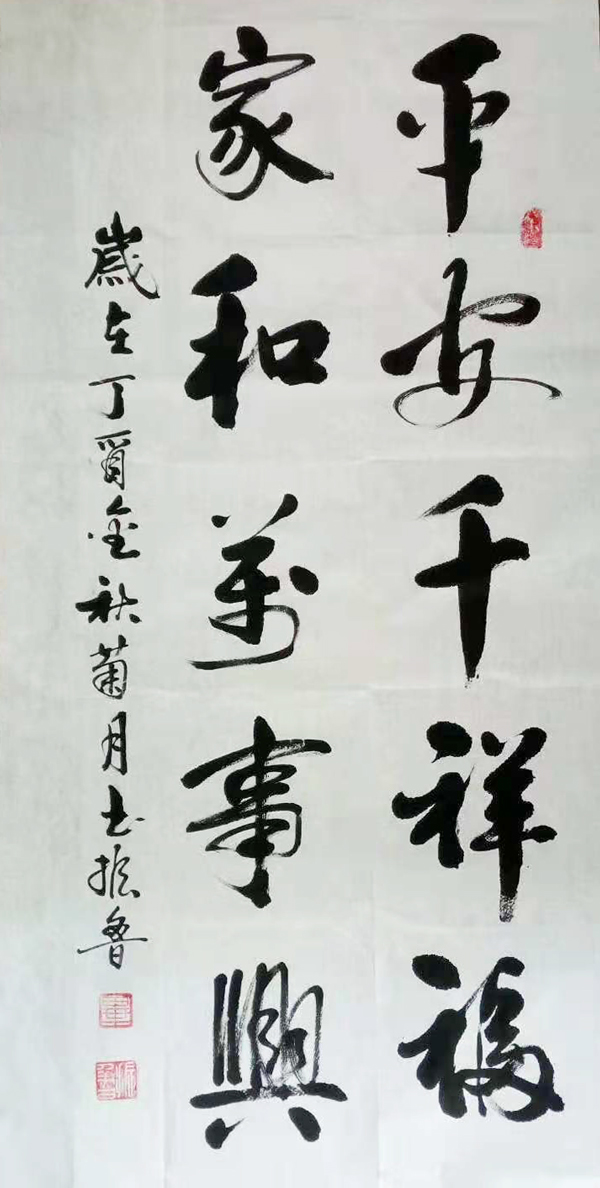 平安千祥福
家和萬事興
歲在丁酉金秋菊月書振魯